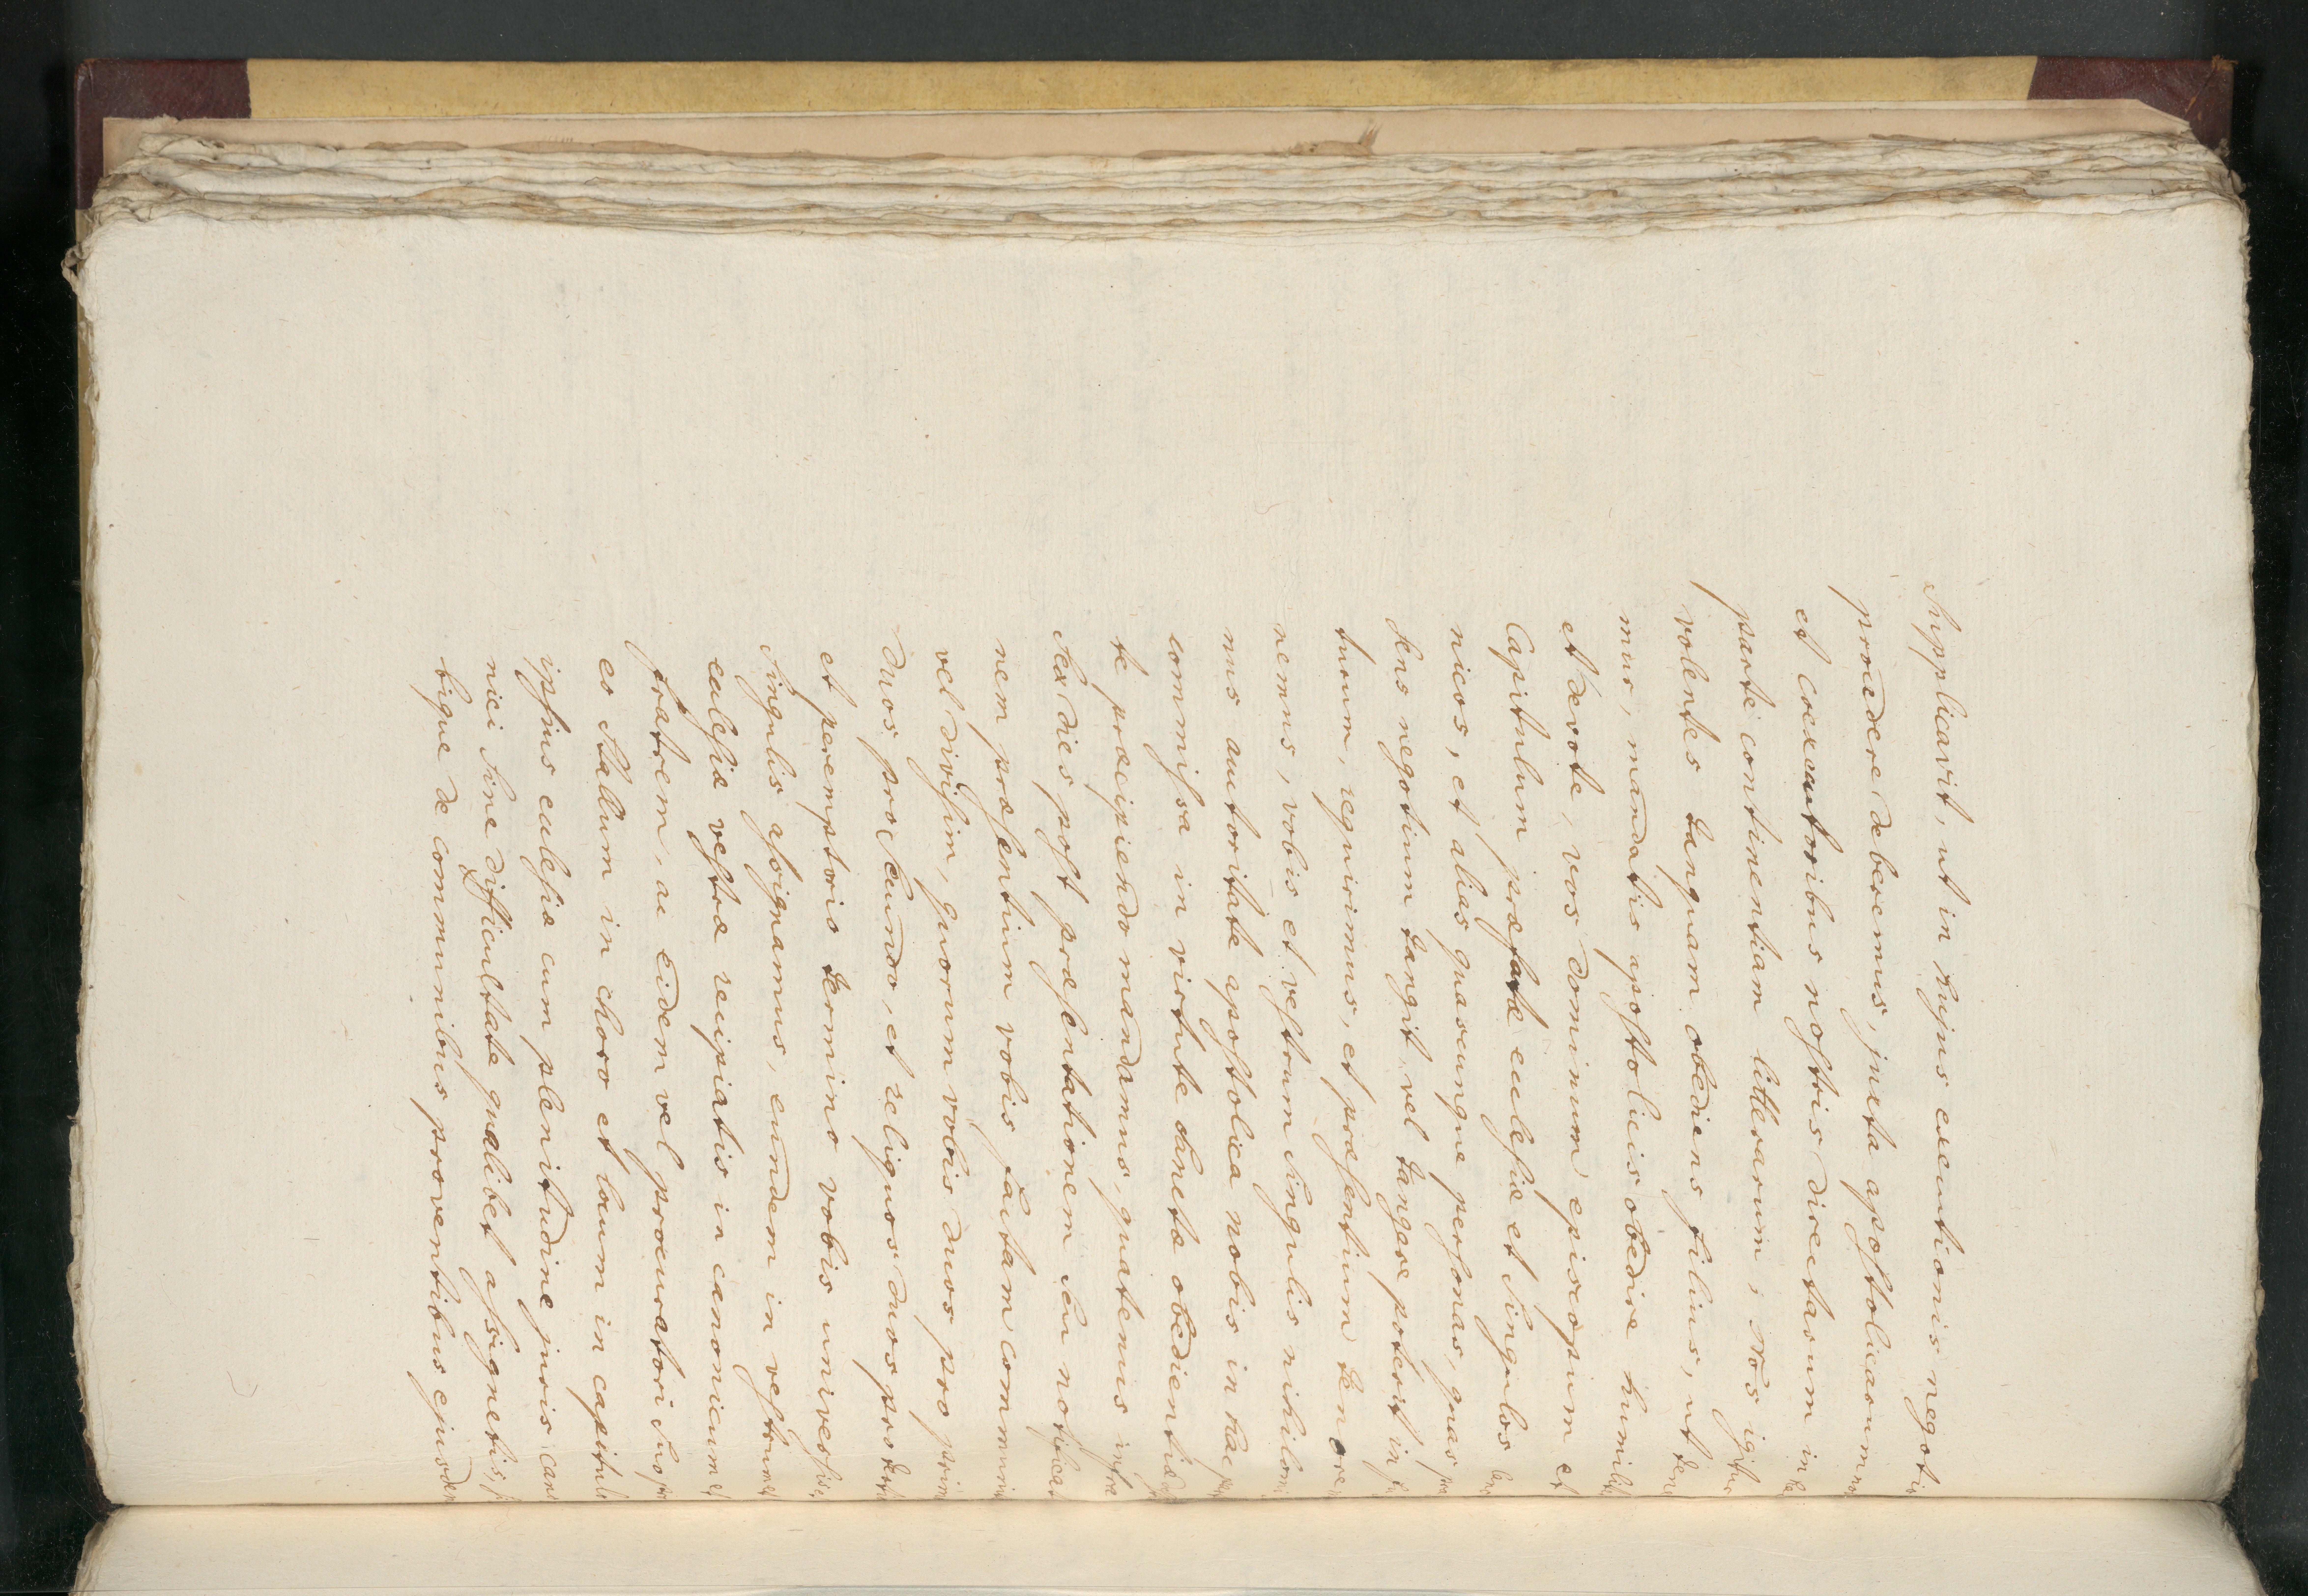 Supplicavit, ut in hujus executionis negotio
procedere deberemus, juxta apostolicarum no
et coexecutoribus nostris directarum in
parte continentiam litterarum; Nos igitur
volentes tanquam obediens filius, ut tene
mur, mandatis apostolicis obedire humilit
et devote, vos dominum episcopum et
Capitulum præfatæ ecclesiæ et singulos
nicos, et alias quascunque personas, quas
sens negotium tangit vel tangere poterit in
turum, requirimus, et præsentium tenore
nemus, vobis et vestrum singulis nihilomi
nus auctoritate apostolica nobis in hac
commissa in virtute sanctæ obedientiæ
te præcipiendo mandamus, quatenus infra
sex dies post præsentationem seu notificat
nem præsentium vobis factam communi
vel divisim, quorum vobis duos pro prim
duos pro secundo, et reliquos duos pro
et peremptorio termino vobis universis
singulis assignamus, eundem in vestrum et
ecclesiæ vestræ recipiatis in canonicum et
fratrem, ac eidem vel procuratori suo
eo stallum in choro et locum in capitulo
ipsius ecclesiæ cum plenitudine juris cano
nici sine difficultate qualibet assignetis,
tique de communibus proventibus ejusdem